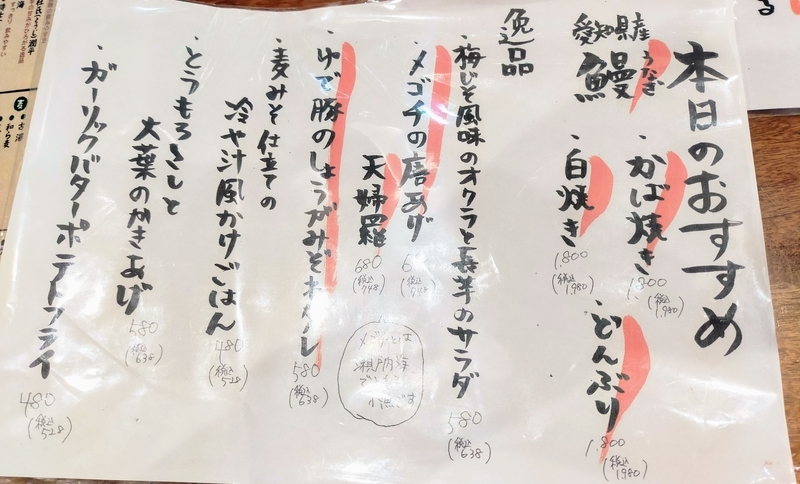 本日のおすすめ
愛知県産
うなぎ
鰻
・かば焼き
(税込
1,980)
・白焼き
1,800
(税込
1,980)
・どんぶり
1,800
(税込
1,980)
逸品
・梅じそ風味のオクラと長芋のサラダ
580
(税込
638)
・メゴチの唐あげ
(税込
748)
天婦羅
680
(税込
748)
メゴチとは
瀬戸内海
小魚です
・ゆで豚のしょうがみぞれポン
580
(税込
638)
・麦みそ仕立ての
冷や汁風かけごはん
480
(税込
528)
・とうもろこしと
大葉のかきあげ
580
(税込
638)
・ガーリックバターポテトフライ
480
(税込
528)